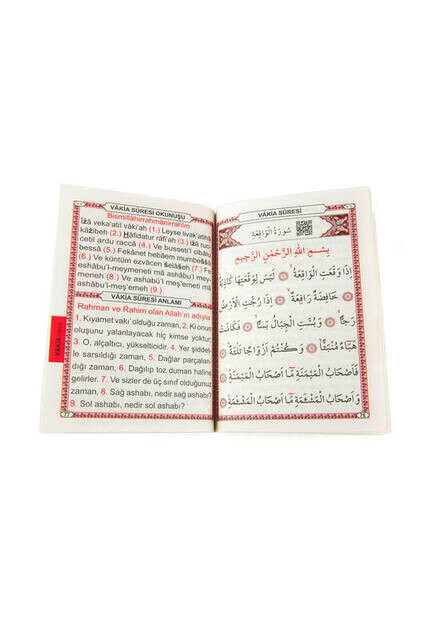 VÂKİA SÛRESİ OKUNUŞU
Bismillâhirrahmânirrahîm
İžâ veka'atil vâki'ah (1.) Leyse livak'atihâ
kâžibeh (2.) Ḣâfidatur râfi'ah (3.) İžâ ruc
cetil ardu raccâ (4.) Ve busseti'l cibâl
(5.) Fekânet hebâem mumbessâ
(6.) Ve kuntum ezvâcen šelâšeh (7.) Fe
ashâbu'l-meymeneti mâ ashâbu'l-meymeneh
(8.) Ve ashâbu'l meş'emeti mâ
ashâbu'l-meş'emeh (9.)
VÂKİA SÛRESİ ANLAMI
Rahman ve Rahim olan Allah'ın adıyla
1. Kıyamet vakı' olduğu zaman, 2. Ki onun
oluşunu yalanlayacak hiç kimse yoktur.
3. O, alçaltıcı, yükselticidir. 4. Yer şiddet
le sarsıldığı zaman, 5. Dağlar parçalan
dığı zaman, 6. Dağılıp toz duman haline
gelirler. 7. Ve sizler de üç sınıf olduğunuz
zaman, 8. Sağ ashabı, nedir sağ ashabı?
9. Sol ashabı, nedir sol ashabı?
VÂKİA
77
VÂKİA SÛRESİ
سُورَةُ الْوَاقِعَةِ
بِسْمِ اللّٰهِ الرَّحْمٰنِ الرَّحِيمِ
اِذَا وَقَعَتِ الْوَاقِعَةُ ۞ لَيْسَ لِوَقْعَتِهَا كَاذِبَةٌ
۞ خَافِضَةٌ رَافِعَةٌ ۞ اِذَا رُجَّتِ الْاَرْضُ
رَجًّا ۞ وَبُسَّتِ الْجِبَالُ بَسًّا ۞ فَكَانَتْ
هَبَاءً مُنْبَثًّا ۞ وَكُنْتُمْ اَزْوَاجًا ثَلٰثَةً ۞
فَاَصْحَابُ الْمَيْمَنَةِ مَا اَصْحَابُ الْمَيْمَنَةِ ۞
وَاَصْحَابُ الْمَشْـَٔمَةِ مَا اَصْحَابُ الْمَشْـَٔمَةِ ۞